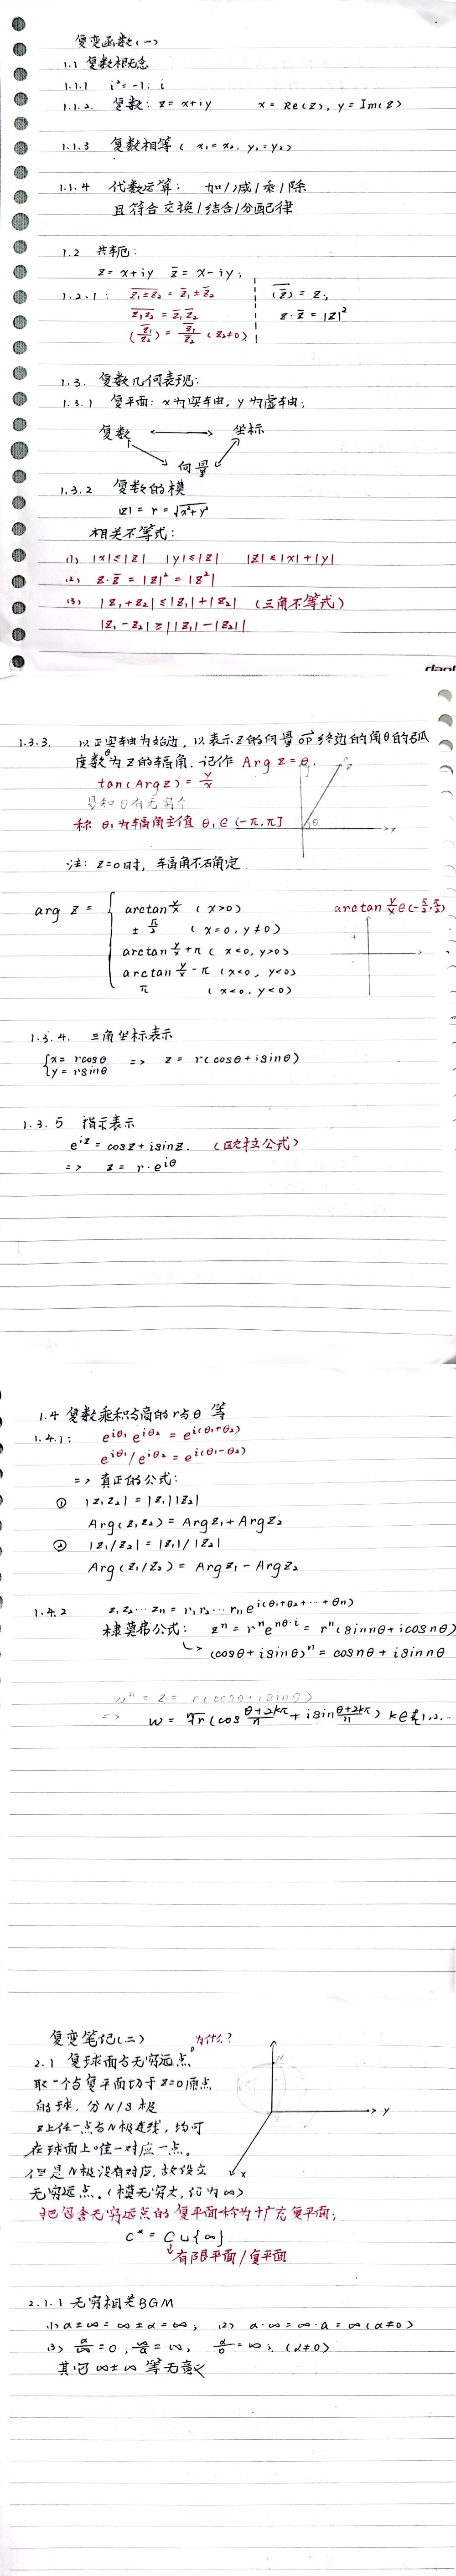 复变函数(一)
1.1 复数概念
1.1.1 i²=-1; i
1.1.2. 复数: z=x+iy x=Re(z), y=Im(z)
1.1.3 复数相等 ( x₁=x₂. y₁=y₂)
1.1.4 代数运算: 加/减/乘/除
且符合交换/结合/分配律
1.2 共轭:
z=x+iy z̅=x-iy;
1.2.1: \overline{z₁±z₂} = z̅₁±z̅₂ \overline{(z̅)} = z;
\overline{z₁z₂} = z̅₁z̅₂ z·z̅=|z|²
\overline{(z₁/z₂)} = z̅₁/z̅₂ (z₂≠0)
1.3. 复数几何表现:
1.3.1 复平面: x为实轴, y为虚轴;
复数 ⟷ 坐标
向量
1.3.2 复数的模
|z| = r = √(x²+y²)
相关不等式:
(1) |x|≤|z| |y|≤|z| |z|≤|x|+|y|
(2) z·z̅ = |z|² = |z²|
(3) |z₁+z₂|≤|z₁|+|z₂| (三角不等式)
|z₁-z₂|≥||z₁|-|z₂||
1.3.3. 以正实轴为始边, 以表示z的向量OP终边的角θ的弧
度数θ为z的辐角. 记作 Arg z=θ.
tan(Arg z) = y/x
易知θ有无穷个
称θ₁为辐角主值 θ₁∈(-π,π]
z
θ
x
注: z=0时, 辐角不确定
arg z = { arctan y/x (x>0)
± π/2 (x=0, y≠0)
arctan y/x +π (x<0, y>0)
arctan y/x -π (x<0, y<0)
π (x<0, y<0)
arctan y/x ∈(-π/2,π/2)
+
-
1.3.4. 三角坐标表示
{x=rcosθ
y=rsinθ => z=r(cosθ+isinθ)
1.3.5 指示表示
e^{iz}=cosz+isinz. (欧拉公式)
=> z=r·e^{iθ}
1.4 复数乘积与商的r与θ等
1.4.1: e^{iθ₁}e^{iθ₂} = e^{i(θ₁+θ₂)}
e^{iθ₁}/e^{iθ₂} = e^{i(θ₁-θ₂)}
=> 真正的公式:
① |z₁z₂|=|z₁||z₂|
Arg(z₁z₂) = Argz₁+Argz₂
② |z₁/z₂|=|z₁|/|z₂|
Arg(z₁/z₂) = Argz₁-Argz₂
1.4.2 z₁z₂…zₙ=r₁r₂…rₙe^{i(θ₁+θ₂+…+θₙ)}
棣莫弗公式: zⁿ=rⁿe^{nθ·i} = rⁿ(sinnθ+icosnθ)
(cosθ+isinθ)ⁿ=cosnθ+isinnθ
wⁿ=z= r(cosθ+isinθ)
=> w=ⁿ√r(cos (θ+2kπ)/n + isin (θ+2kπ)/n) k∈{1,2,…
复变笔记(二)
为什么?
2.1 复球面与无穷远点
取一个与复平面切于z=0原点
的球, 分N/S极
z上任一点与N极连线, 均可
在球面上唯一对应一点。
但是N极没有对应. 故设立
无穷远点。(模无穷大, 记为∞)
N
y
x
把包含无穷远点的复平面称为扩充复平面;
C* = C∪{∞}
有限平面/复平面
2.1.1 无穷相关BGM
(1) α±∞=∞±α=∞; (2) α·∞=∞·α=∞(α≠0)
(3) α/∞=0, ∞/α=∞, α/0=∞; (α≠0)
其它 ∞±∞ 等无意义